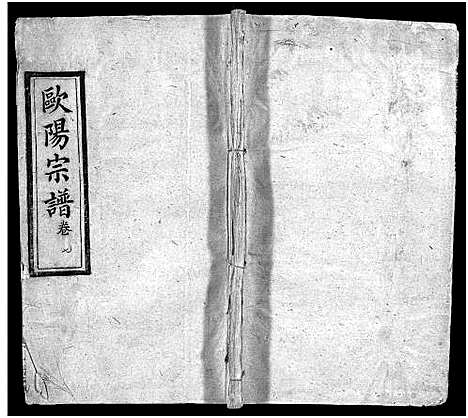 歐陽宗譜
卷七